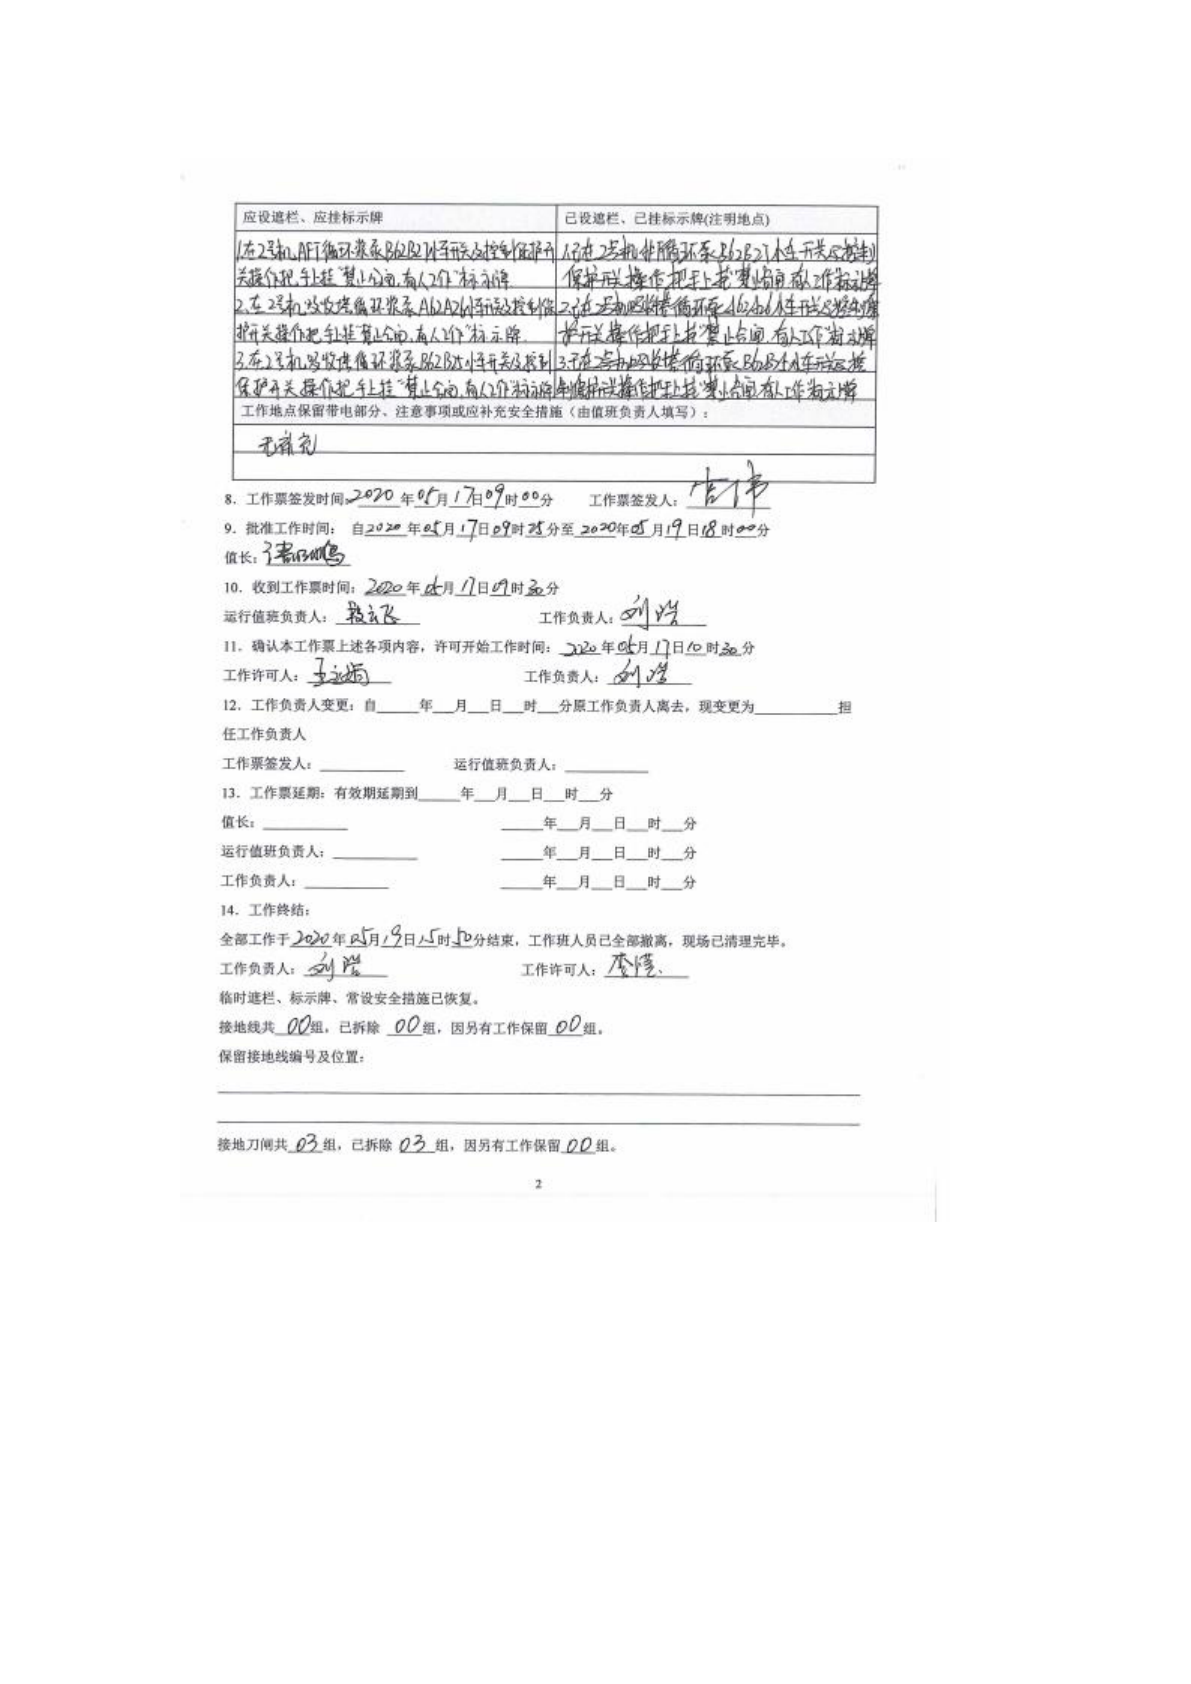 应设遮栏、应挂标示牌
已设遮栏、已挂标示牌(注明地点)
1.在2号机AFT循环浆泵B62B27小车开关及控制保护开
关操作把手上挂"禁止合闸,有人工作"标示牌
2.在2号机吸收塔循环浆泵A62A26小车开关及控制保
护开关操作把手上挂"禁止合闸,有人工作"标示牌
3.在2号机吸收塔循环浆泵B62B25小车开关及控制
保护开关操作把手上挂"禁止合闸,有人工作"标示牌
1.已在2号机 循环泵B62B27小车开关及控制
保护开关操作把手上挂"禁止合闸,有人工作"标示牌
2.已在2号机吸收塔循环泵 小车开关及控制保
护开关操作把手上挂"禁止合闸,有人工作"标示牌
3.已在2号机吸收塔循环泵 小车开关及控
制保护开关操作把手上挂"禁止合闸,有人工作"标示牌
工作地点保留带电部分、注意事项或应补充安全措施(由值班负责人填写):
无补充
8. 工作票签发时间:2020年05月17日09时00分 工作票签发人:
9. 批准工作时间: 自2020年05月17日09时25分至2020年05月19日18时00分
值长:
10. 收到工作票时间:2020年05月17日09时30分
运行值班负责人:段云飞 工作负责人:刘浩
11. 确认本工作票上述各项内容,许可开始工作时间:2020年05月17日10时30分
工作许可人:王 工作负责人:刘浩
12. 工作负责人变更:自______年___月___日___时___分原工作负责人离去,现变更为____________担
任工作负责人
工作票签发人:____________ 运行值班负责人:____________
13. 工作票延期:有效期延期到______年___月___日___时___分
值长:____________ ______年___月___日___时___分
运行值班负责人:____________ ______年___月___日___时___分
工作负责人:____________ ______年___月___日___时___分
14. 工作终结:
全部工作于2020年05月19日15时50分结束,工作班人员已全部撤离,现场已清理完毕。
工作负责人:刘浩 工作许可人:李
临时遮栏、标示牌、常设安全措施已恢复。
接地线共00组,已拆除00组,因另有工作保留00组。
保留接地线编号及位置:
接地刀闸共03组,已拆除03组,因另有工作保留00组。
2